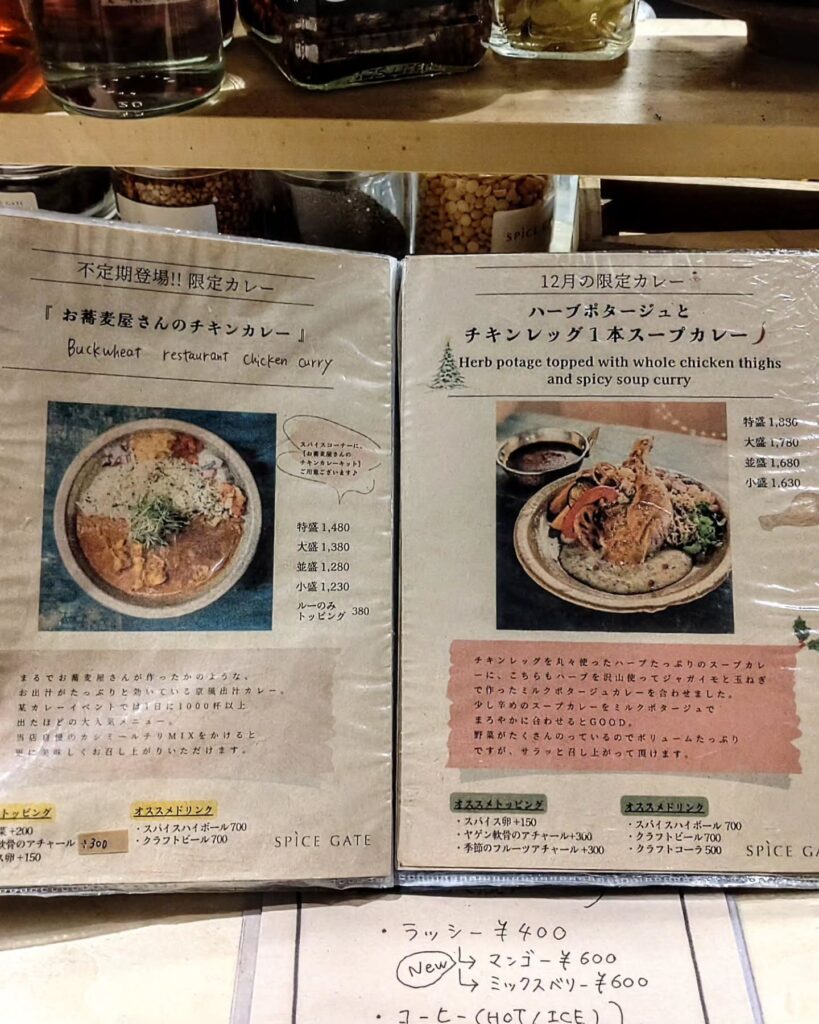 SPICE G
不定期登場!! 限定カレー
『 お蕎麦屋さんのチキンカレー 』
Buckwheat restaurant chicken curry
スパイスコーナーに、
【お蕎麦屋さんの
チキンカレーキット】
ご用意ございます♪
特盛 1,480
大盛 1,380
並盛 1,280
小盛 1,230
ルーのみ
トッピング 380
まるでお蕎麦屋さんが作ったかのような、
お出汁がたっぷりと効いている京風出汁カレー。
某カレーイベントでは1日に1000杯以上
出たほどの大人気メニュー。
当店自慢のカシミールチリMIXをかけると
更に美味しくお召し上がりいただけます。
トッピング
菜 +200
軟骨のアチャール +300
ス卵 +150
オススメドリンク
・スパイスハイボール 700
・クラフトビール 700
SPICE GATE
12月の限定カレー
ハーブポタージュと
チキンレッグ1本スープカレー
Herb potage topped with whole chicken thighs
and spicy soup curry
特盛 1,880
大盛 1,780
並盛 1,680
小盛 1,630
チキンレッグを丸々使ったハーブたっぷりのスープカレ
ーに、こちらもハーブを沢山使ってジャガイモと玉ねぎ
で作ったミルクポタージュカレーを合わせました。
少し辛めのスープカレーをミルクポタージュで
まろやかに合わせるとGOOD。
野菜がたくさんのっているのでボリュームたっぷり
ですが、サラッと召し上がって頂けます。
オススメトッピング
・スパイス卵 +150
・ヤゲン軟骨のアチャール +300
・季節のフルーツアチャール +300
オススメドリンク
・スパイスハイボール 700
・クラフトビール 700
・クラフトコーラ 500
SPICE GA
・ラッシー ¥400
New → マンゴー ¥600
→ ミックスベリー ¥600
・コーヒー (HOT/ICE)